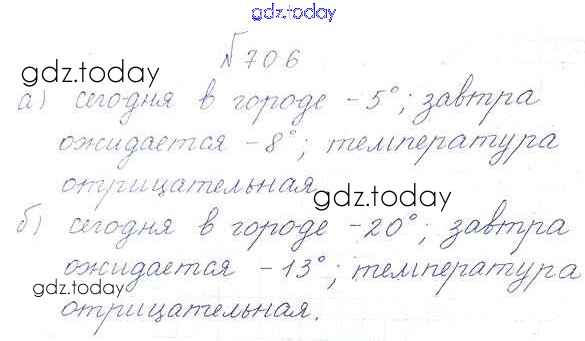 gdz.today
№ 706
gdz.today
а) сегодня в городе -5°; завтра
ожидается -8°; температура
отрицательная
gdz.today
б) сегодня в городе -20°; завтра
ожидается -13°; температура
gdz.today
отрицательная.